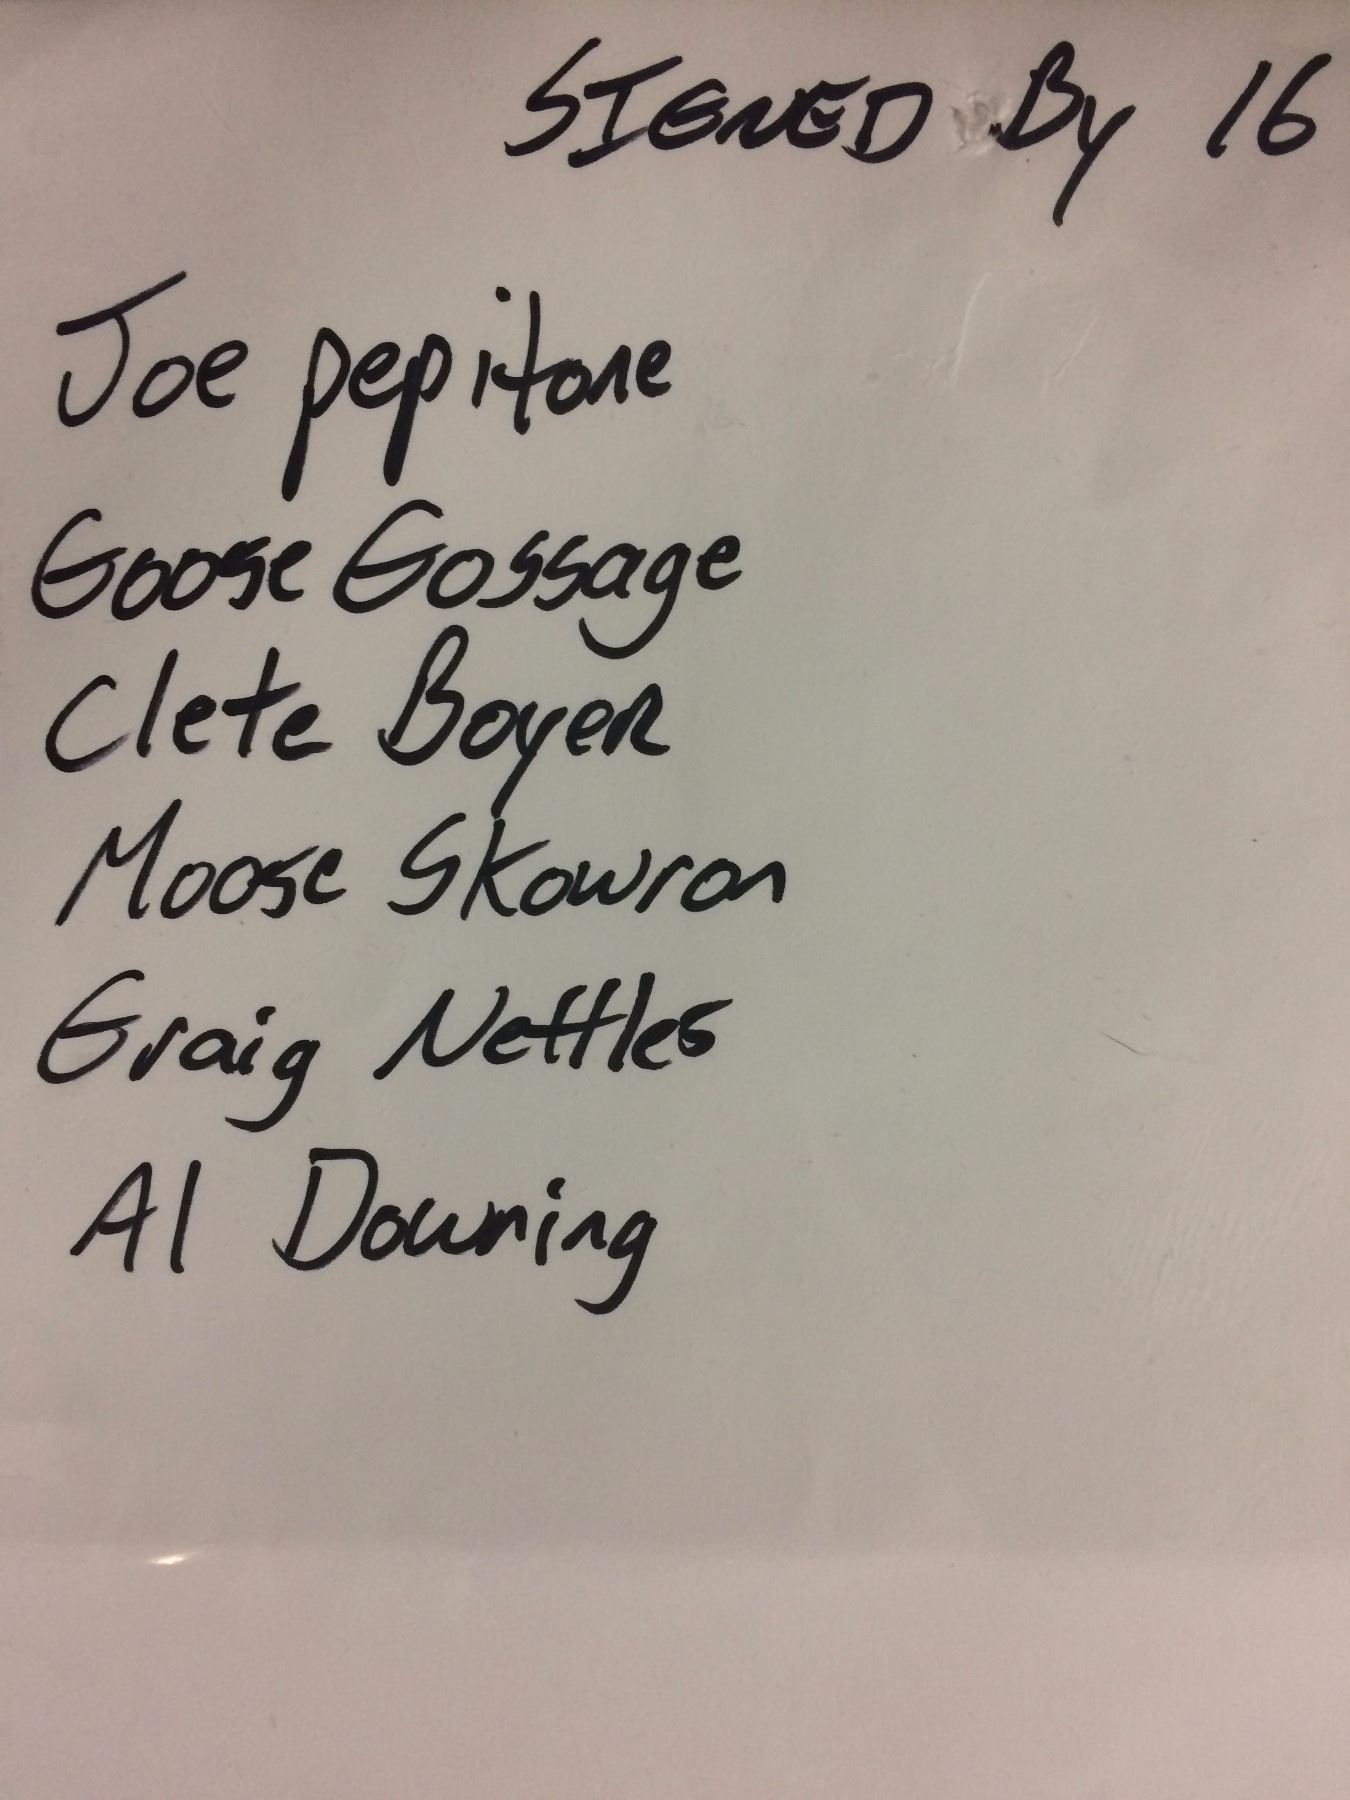 SIGNED By 16
Joe pepitone
Goose Gossage
Clete Boyer
Moose Skowron
Graig Nettles
Al Downing